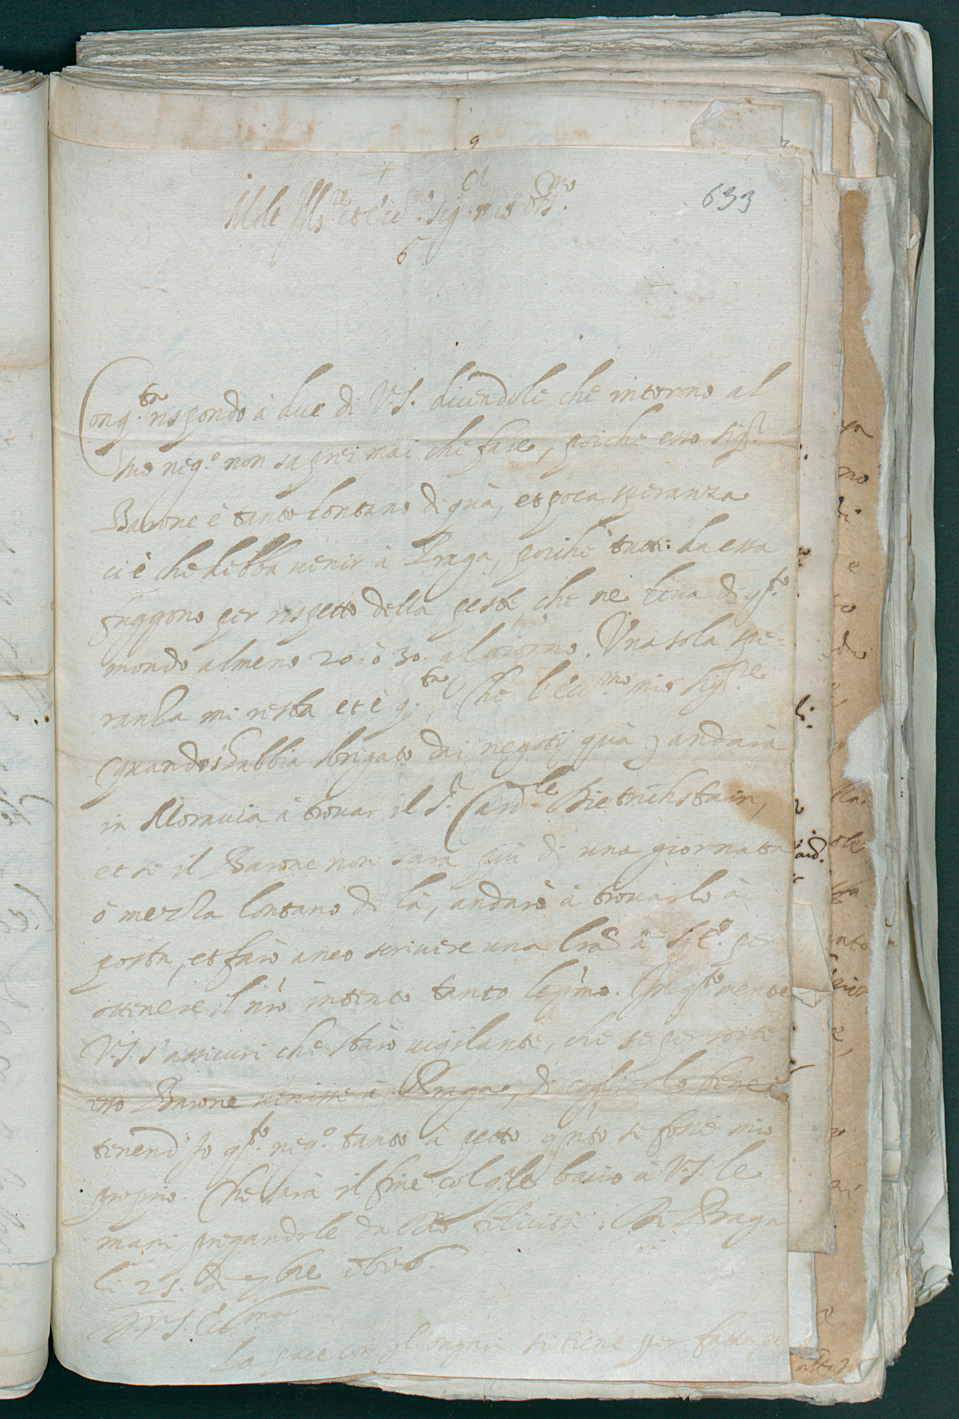 9
633
Molt Ill.re et Ecc.mo Sig.r mio oss.mo
6
Con q.ta rispondo à due di V.S. dicendole che intorno al
suo neg.o non saprei mai che fare, poiche esso Sig.r
Barone è tanto lontano di quà, et poca speranza
ci è che debba venir à Praga, poiche tutti da essa
fuggono per rispetto della peste, che ne leva di q.sto
mondo almeno 20. ò 30. al giorno. Una sola spe-
ranza mi resta et è q.ta, Che l'Ecc.mo mio Sig.re
(quando s'habbia sbrigato dai negotij quà) andarà
in Moravia à trovar il S.r Card.le Dietrichstain,
et se il Barone non sarà più di una giornata
ò mezza lontano di là, andarò à trovarlo à
posta, et farò anco scrivere una l'ra à per
ottenere il n'ro intento tanto leg.mo. mente
V.S. s'assicuri che starò vigilante, che se per sorte
esso Barone venisse à Praga, di coglierlo bene
tenend'Io q.sto neg.o tanto à petto q.nto se fosse mio
proprio. Che sarà il fine col q.le bacio à V.S. le
mani pregandole da felicità. Di Praga
li 25. di 7bre 1606
D V.S. Ecc.ma
La pace con gl'ongari si tiene per fatta,